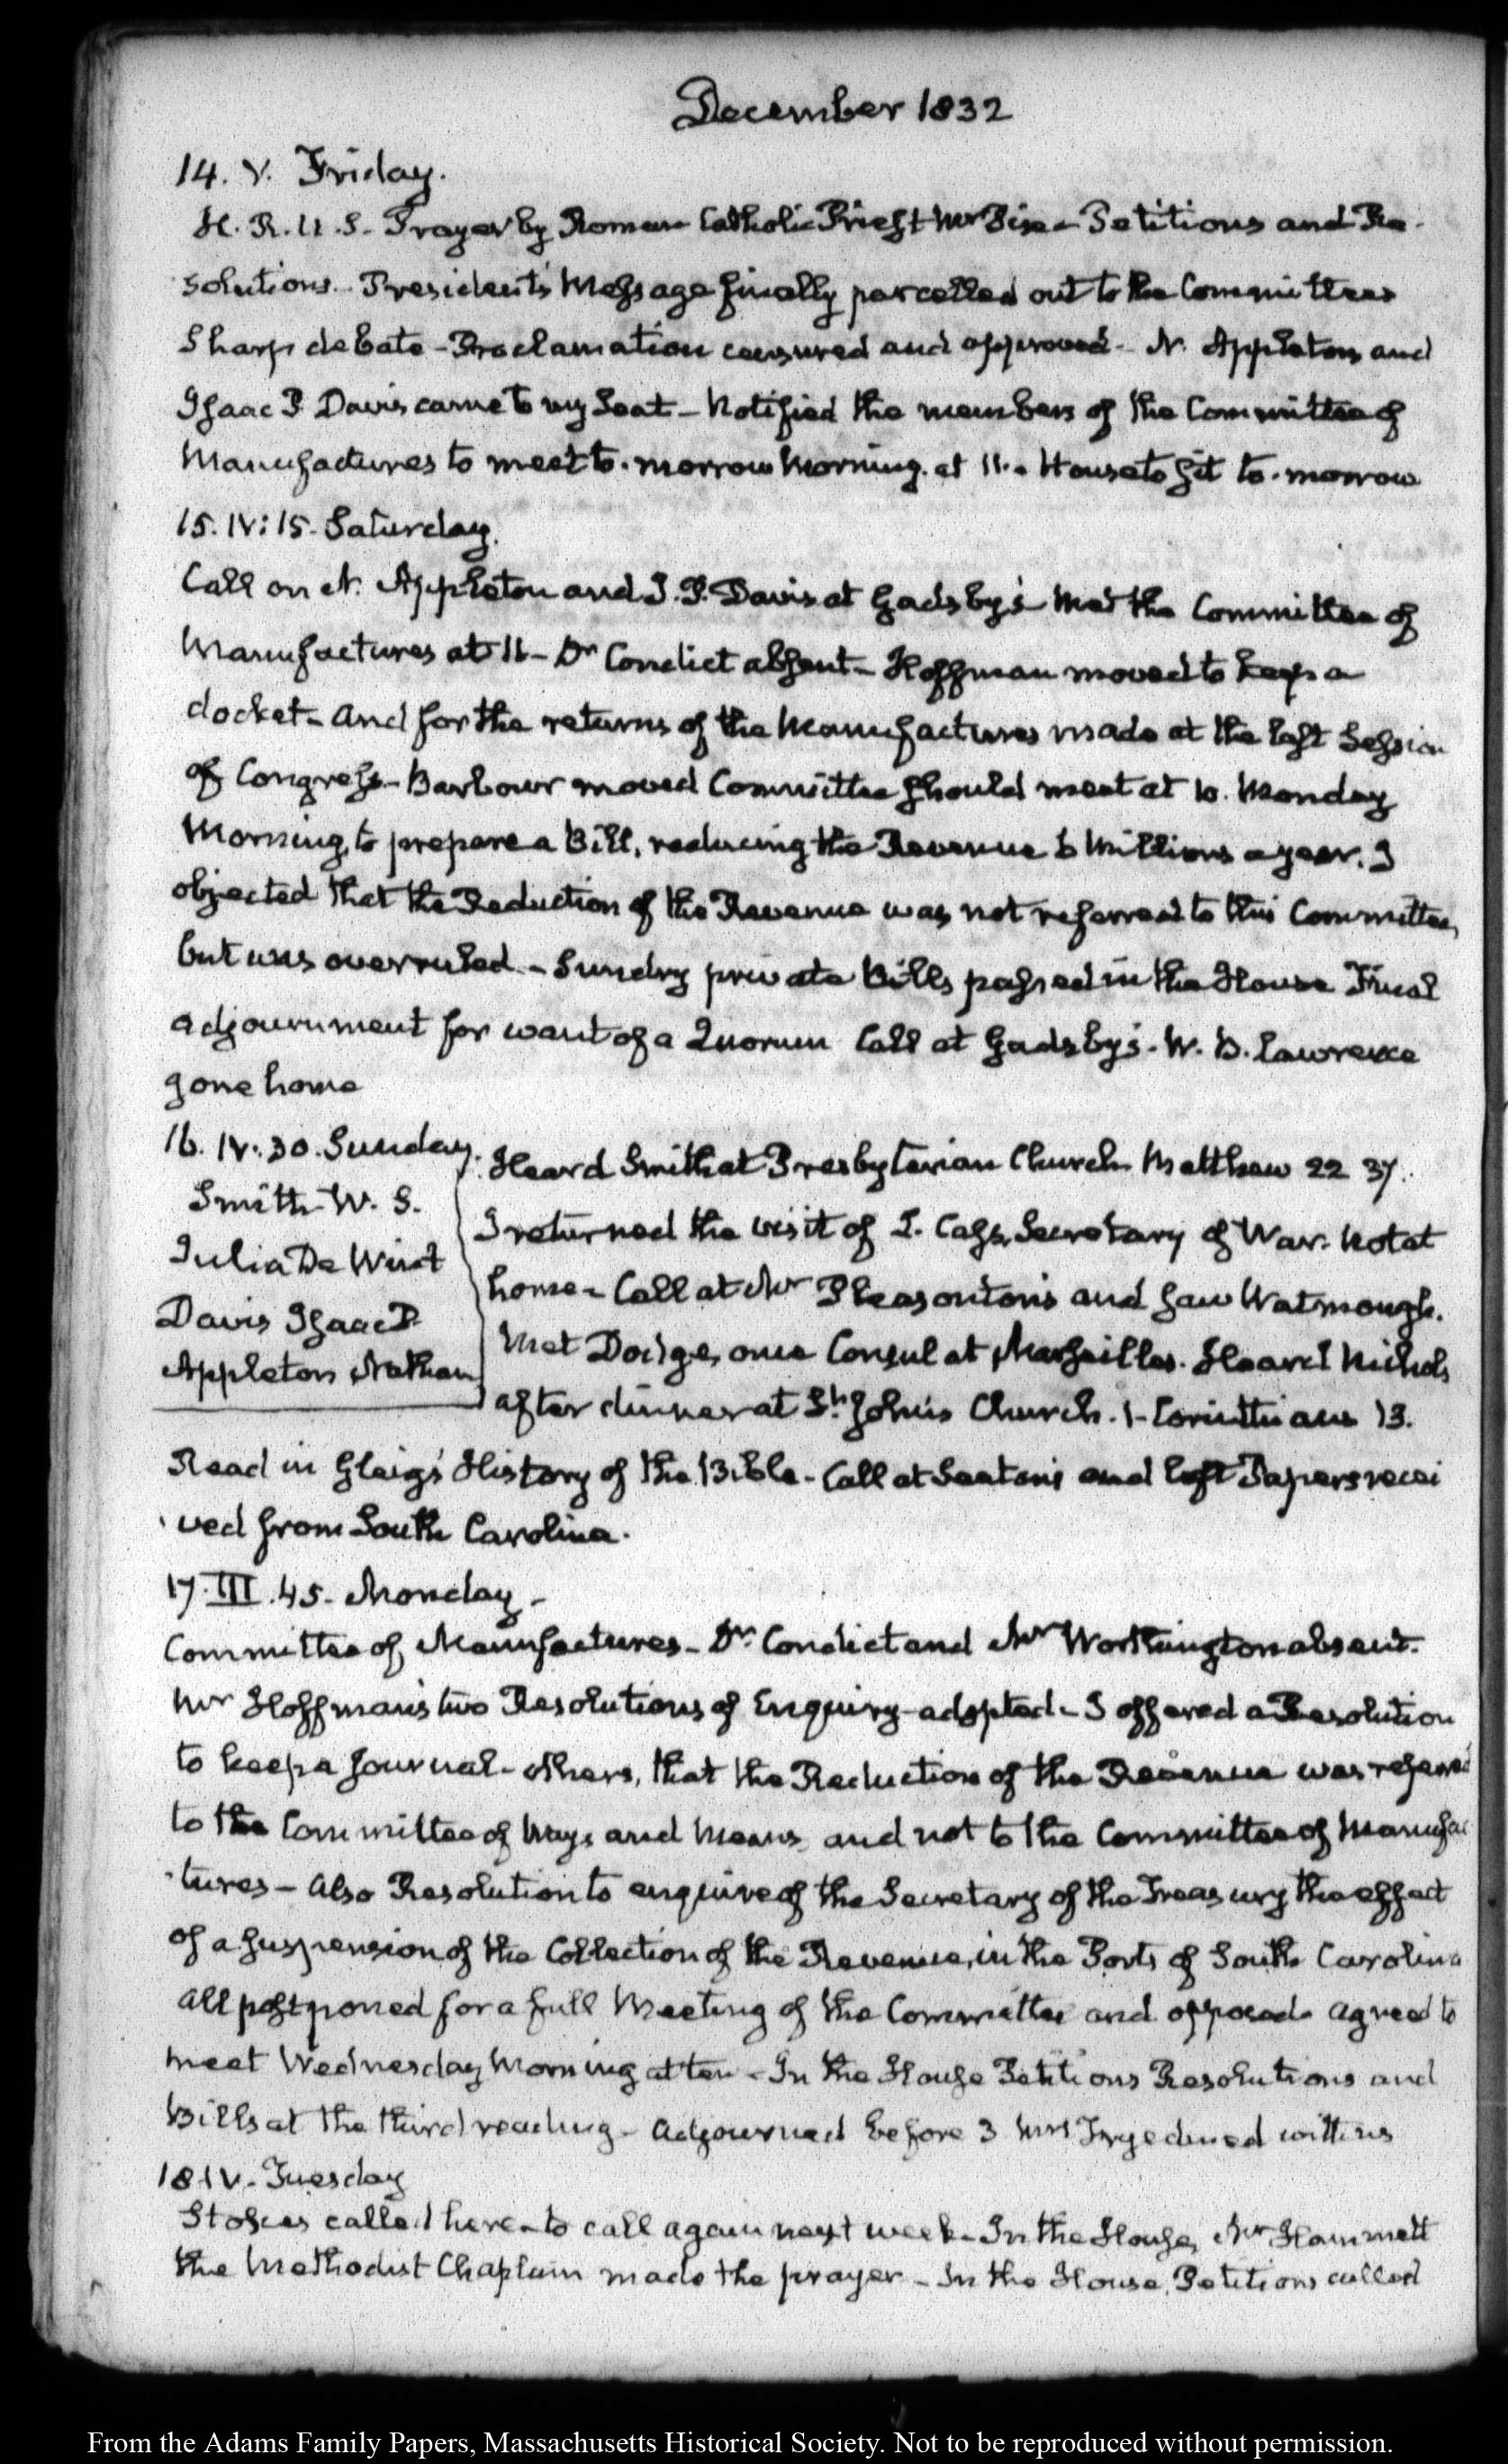 December 1832
14. V. Friday.
H. R. U. S. Prayer by Roman Catholic Priest Mr Pise - Petitions and Re-
solutions. President's Message finally parcelled out to the Committees
Sharp debate - Proclamation censured and approved - N. Appleton and
Isaac P. Davis came to my Seat - Notified the members of the Committee of
Manufactures to meet to-morrow Morning at 11. - House to sit to-morrow
15. IV:15. Saturday.
Call on N. Appleton and I. P. Davis at Gadsby's Met the Committee of
Manufactures at 11 - Dr Condict absent - Hoffman moved to keep a
docket - and for the returns of the Manufactures made at the last Session
of Congress - Barbour moved Committee should meet at 10. Monday
Morning, to prepare a Bill, reducing the Revenue 6 Millions a year. I
objected that the Reduction of the Revenue was not referred to this Committee,
but was overruled - Sundry private Bills passed in the House Final
adjournment for want of a Quorum Call at Gadsby's - W. B. Lawrence
gone home
16. IV:30. Sunday.
Smith - W. S.
Julia De Wint
Davis Isaac P.
Appleton Nathan
Heard Smith at Presbyterian Church Matthew 22 37.
I returned the visit of L. Cass, Secretary of War. Not at
home - Call at Mr Pleasonton's and saw Watmough.
Met Dodge, once Consul at Marseilles. Heard Nichols
after dinner at St. John's Church. 1. Corinthians 13.
Read in Gleig's History of the Bible - Call at Seaton's and left Papers recei
ved from South Carolina.
17. III.45. Monday -
Committee of Manufactures - Dr. Condict and Mr Worthington absent.
Mr Hoffman's two Resolutions of Enquiry adopted - I offered a Resolution
to keep a journal - others, that the Reduction of the Revenue was referred
to the Committee of Ways and Means, and not to the Committee of Manufac
-tures - Also Resolution to enquire of the Secretary of the Treasury the effect
of a suspension of the Collection of the Revenue, in the Ports of South Carolina
all postponed for a full Meeting of the Committee and opposed agreed to
meet Wednesday Morning at ten - In the House Petitions Resolutions and
Bills at the third reading - Adjourned before 3 Mrs Frye dined with us
18. IV. Tuesday
Stokes called here - to call again next week - In the House, Mr Hammett
the Methodist Chaplain made the prayer - In the House, Petitions called
From the Adams Family Papers, Massachusetts Historical Society. Not to be reproduced without permission.